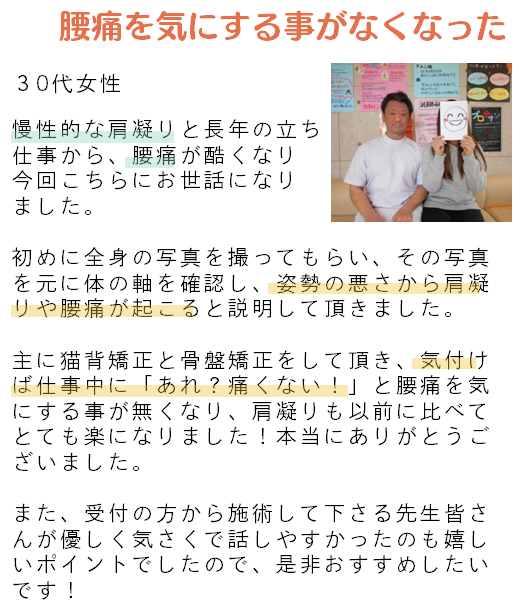 腰痛を気にする事がなくなった
３０代女性
慢性的な肩凝りと長年の立ち
仕事から、腰痛が酷くなり
今回こちらにお世話になり
ました。
初めに全身の写真を撮ってもらい、その写真
を元に体の軸を確認し、姿勢の悪さから肩凝
りや腰痛が起こると説明して頂きました。
主に猫背矯正と骨盤矯正をして頂き、気付け
ば仕事中に「あれ？痛くない！」と腰痛を気
にする事が無くなり、肩凝りも以前に比べて
とても楽になりました！本当にありがとうご
ざいました。
また、受付の方から施術して下さる先生皆さ
んが優しく気さくで話しやすかったのも嬉し
いポイントでしたので、是非おすすめしたい
です！